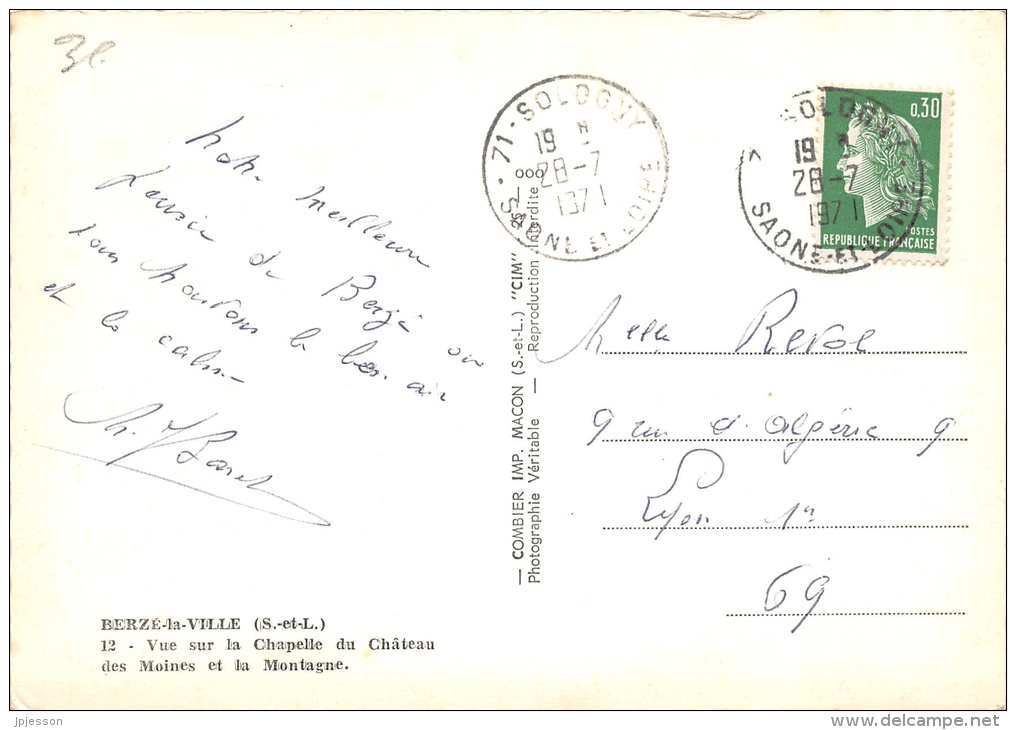 3€
Notre meilleur
pensée de Berzé où
nous trouvons le bon air
et le calme
BERZÉ-la-VILLE (S.-et-L.)
12 - Vue sur la Chapelle du Château
des Moines et la Montagne.
— COMBIER IMP. MACON (S.-et-L.) "CIM"
Photographie Véritable — Reproduction Interdite
71 - SOLOGNY
19 H
28-7
1971
SAONE ET LOIRE
SOLOGNY
19 H
28-7
1971
SAONE-ET-LOIRE
0,30
POSTES
REPUBLIQUE FRANÇAISE
Melle Revol
9 rue d'Algérie 9
Lyon 1er
69
jpjesson
www.delcampe.net